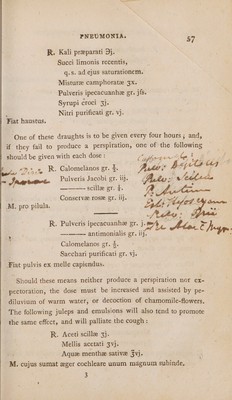 PNEUMONIA. 57
R. Kali præparati ℈j.
Succi limonis recentis,
q. s. ad ejus saturationem.
Misturæ camphoratæ ʒx.
Pulveris ipecacuanhæ gr. jſs.
Syrupi croci ʒj.
Nitri purificati gr. vj.
Fiat haustus.
One of these draughts is to be given every four hours; and,
if they fail to produce a perspiration, one of the following
should be given with each dose:
R. Calomelanos gr. ½.
Pulveris Jacobi gr. iij.
——— scillæ gr. ½.
Conservæ rosæ gr. iij.
M. pro pilula.
R. Pulveris ipecacuanhæ gr. j.
——— antimonialis gr. iij.
Calomelanos gr. ½.
Sacchari purificati gr. vj.
Fiat pulvis ex melle capiendus.
Should these means neither produce a perspiration nor ex-
pectoration, the dose must be increased and assisted by pe-
diluvium of warm water, or decoction of chamomile-flowers.
The following juleps and emulsions will also tend to promote
the same effect, and will palliate the cough:
R. Aceti scillæ ʒj.
Mellis acetati ʒvj.
Aquæ menthæ sativæ ℥vj.
M. cujus sumat æger cochleare unum magnum subinde.
3